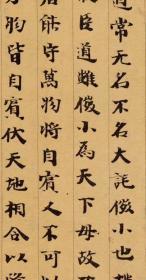 道常无名不名大託微小也樸
臣道雖微小為天下母故
能守萬物將自賓人不可以
物皆自賓伏天地相合以